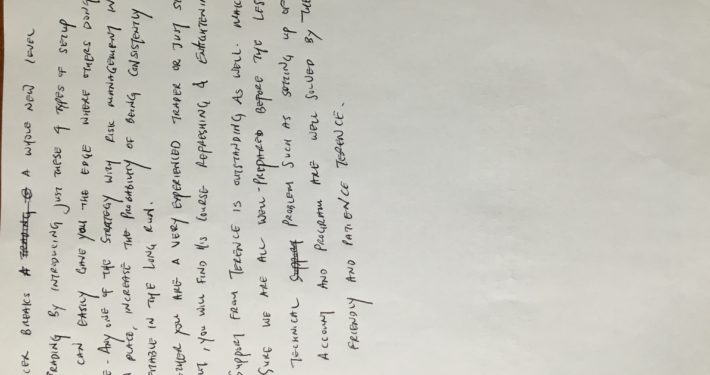 CER BREAKS A WHOLE NEW LEVEL
TRADING BY INTRODUCING JUST THESE 4 TYPES OF SETUP
CAN EASILY GIVE YOU THE EDGE WHERE OTHERS DON'
- ANY ONE OF THE STRATEGY WITH RISK MANAGEMENT IN
PLACE, INCREASE THE PROBABILITY OF BEING CONSISTENTLY
ITABLE IN THE LONG RUN.
THER YOU ARE A VERY EXPERIENCED TRADER OR JUST S
, YOU WILL FIND HIS COURSE REFRESHING & ENLIGHTENIN
SUPPORT FROM TERENCE IS OUTSTANDING AS WELL. MAK
SURE WE ARE ALL WELL-PREPARED BEFORE THE LES
TECHNICAL PROBLEM SUCH AS SETTING UP OF
ACCOUNT AND PROGRAM ARE WELL SOLVED BY THE
FRIENDLY AND PATIENCE TERENCE.